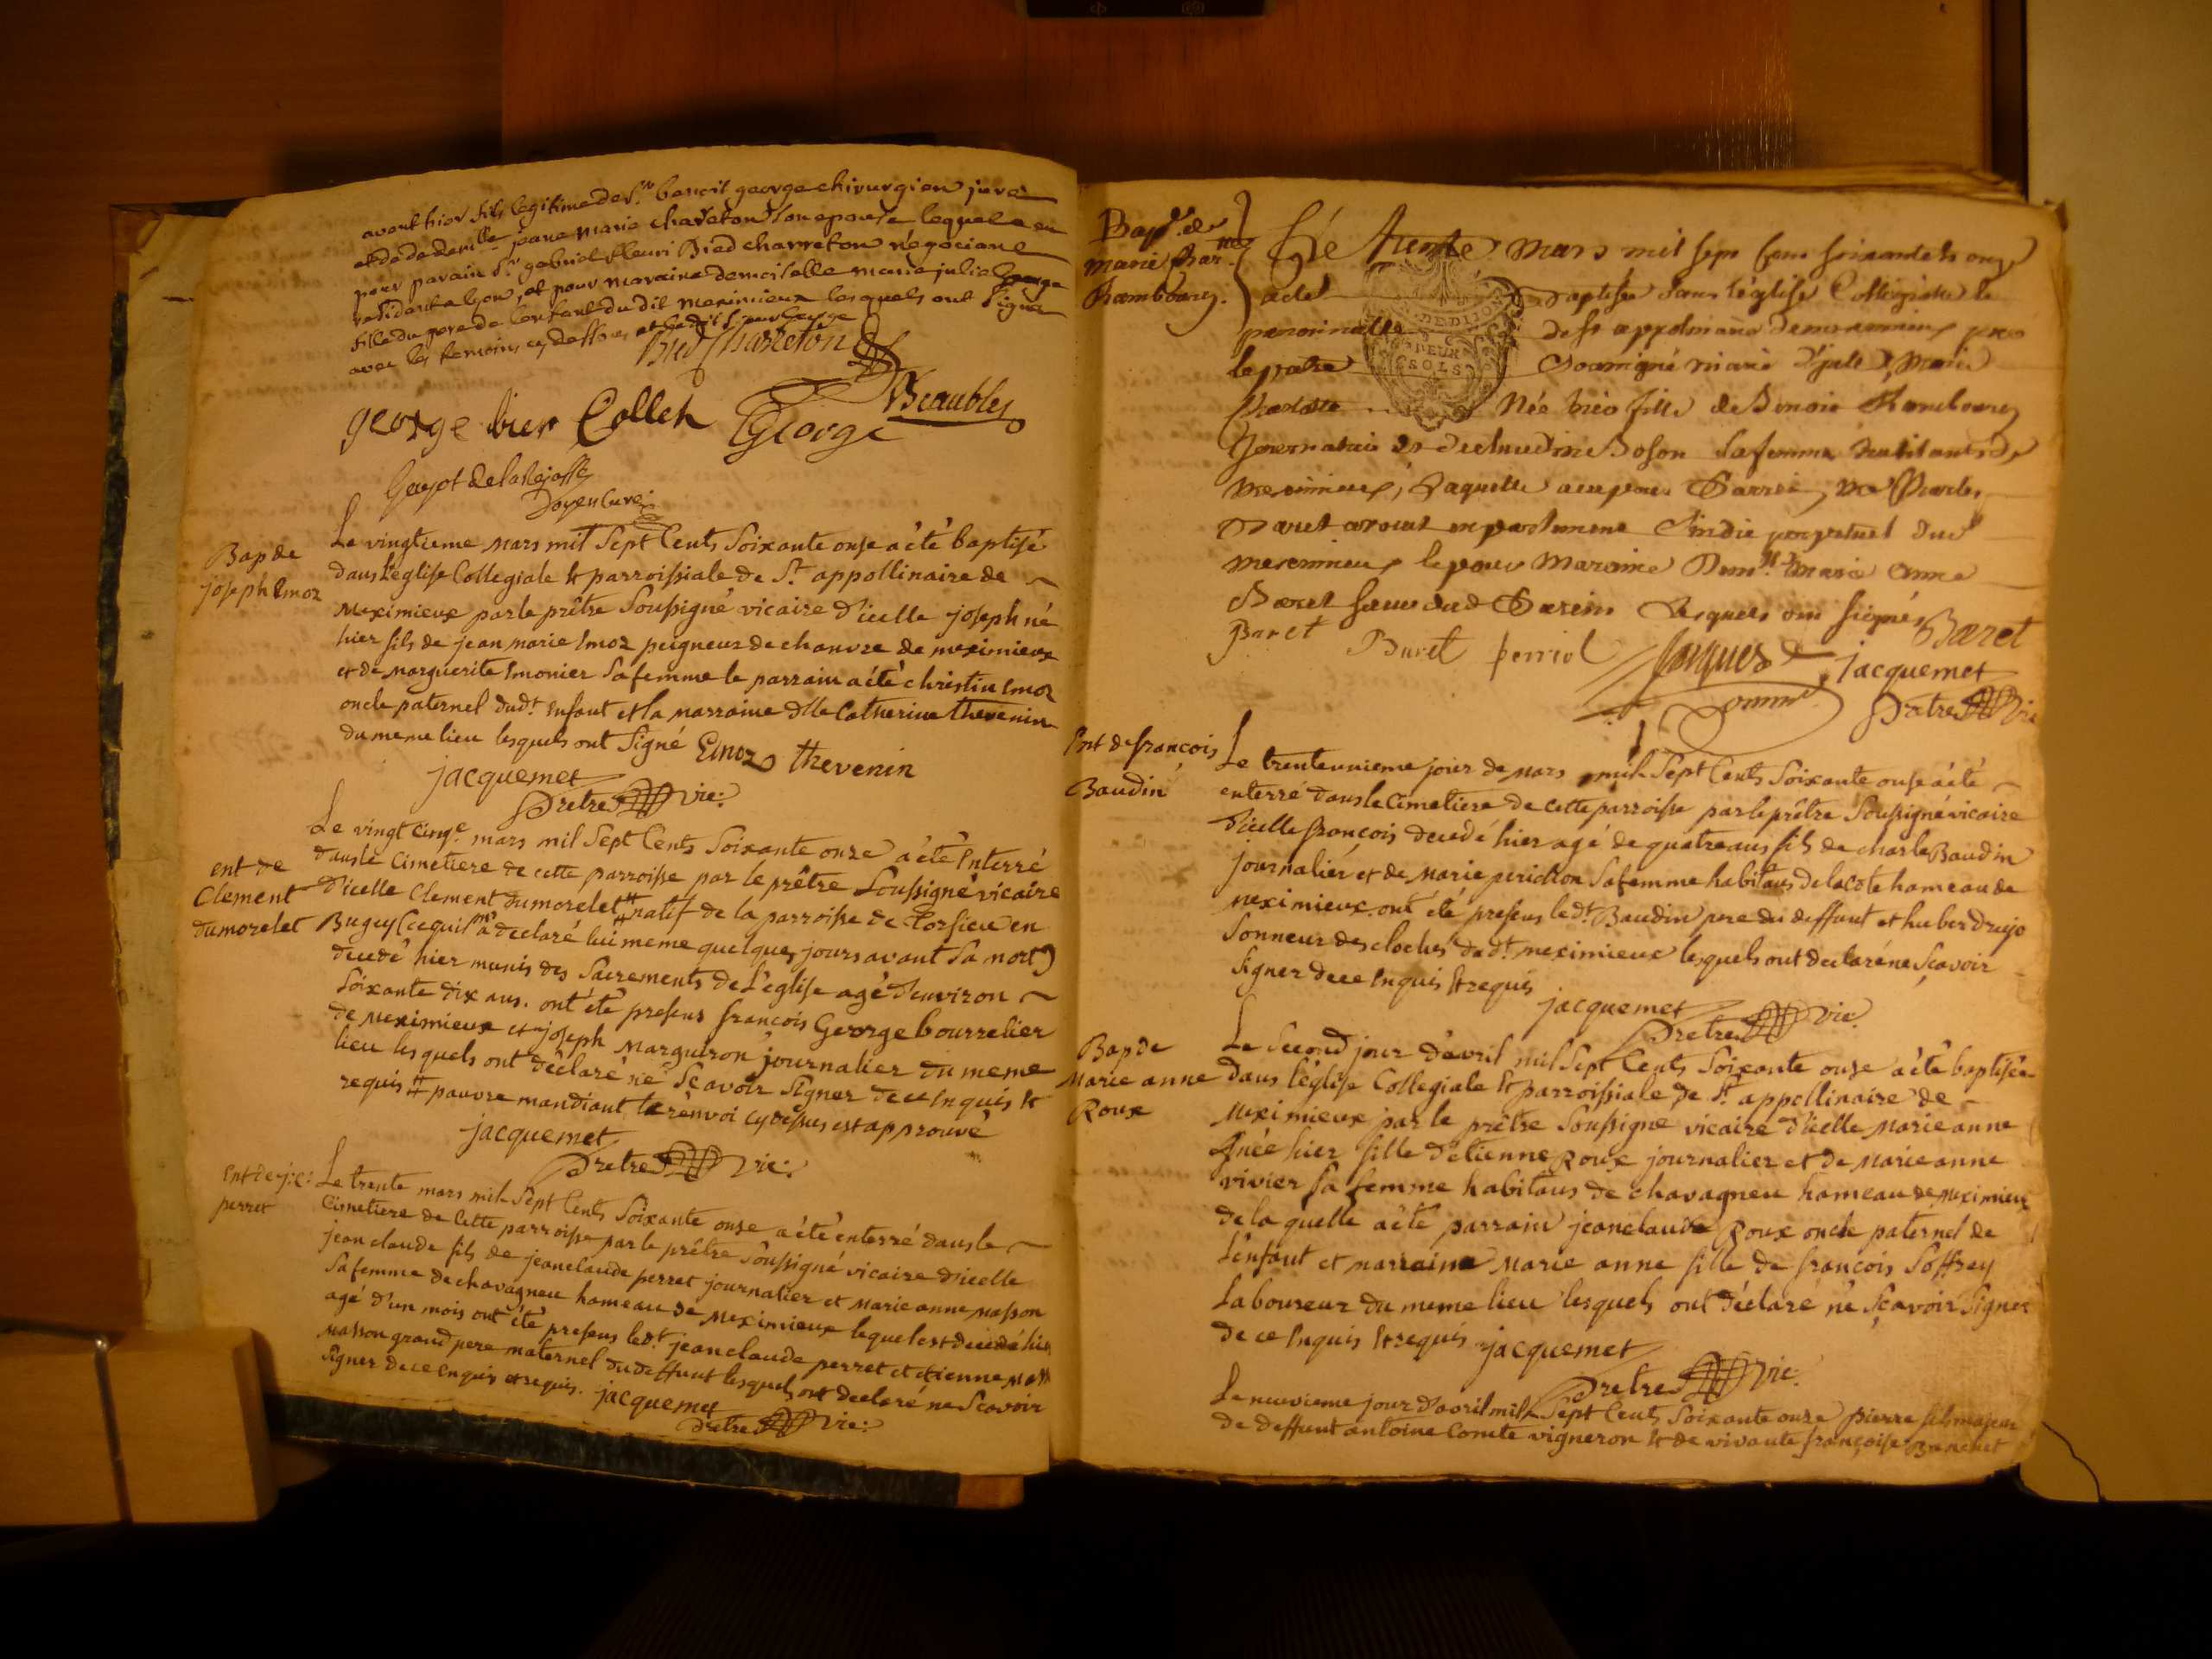 avant hier fils legitime de Sr. benoit george chirurgien juré
et de demlle jeane marie charreton son epouse lequel a eu
pour parain Sr. gabriel fleuri Bied charreton négociant
résidant a lyon, et pour maraine demoiselle marie julie george
fille du pere de l'enfant dudit meximieux lesquels ont signé
avec les temoins cy dessous et ledit sieur george
Bied Charreton
george bier Collet George Beaublez
Guyot de
Doyen Curé
Bap de
joseph Emoz
Le vingtieme mars mil Sept Cents Soixante onse a été baptisé
dans l'eglise Collegiale & parroissiale de St. appollinaire de
Meximieux par le prêtre Soussigné vicaire d'icelle joseph né
hier fils de jean marie Emoz peigneur de chanvre de meximieux
et de marguerite Emonier Sa femme le parrain a été christin Emoz
oncle paternel dudt. Enfant et la marraine dlle Catherine thevenin
du meme lieu lesquels ont Signé Emoz thevenin
jacquemet
Pretre vic:
ent de
Clement
dumorelet
Le vingt cinqe. mars mil Sept Cents Soixante onze a été Enterré
dans le Cimetiere de cette parroisse par le prêtre Soussigné vicaire
d'icelle Clement dumorelet # natif de la parroisse de Lorsieu en
Bugey (ce qu'il m'a declaré lui meme quelques jours avant Sa mort)
decedé hier munis des Sacrements de L'eglise agé d'environ
Soixante dix ans. ont été presens françois George bourrelier
de Meximieux et joseph Marguiron journalier du meme
lieu lesquels ont déclaré né Sçavoir Signer de ce Enquis &
requis # pauvre mandiant le rénvoi cy dessus est approuvé
jacquemet
Pretre vic:
Ent de j: c:
perret
Le trente mars mil Sept Cents Soixante onse a été enterré dans le
Cimetiere de Cette parroisse par le prêtre Soussigné vicaire d'icelle
jean claude fils de jeanclaude perret journalier et Marie anne Masson
Sa femme de chavagneu hameau de Meximieux lequel est decedé hier
agé d'un mois ont été presens ledt. jeanclaude perret et etienne Mass
Masson grand pere maternel du deffunt lesquels ont declaré ne Scavoir
Signer de ce Enquis et requis. jacquemet
Pretre vic:
Bapt. de
marie Bar.
Rambourg.
Le trente mars mil sept cens soixante & onze
a été Baptisée dans l'église Collegiale &
paroissialle de St appolinaire de meximieux par
le pretre Soussigné marie
Née hier fille de Benoit Rambourg
et de claudine Boson sa femme habitants de
meximieux, Laquelle a eu pour Parrein, Me Charles
Baret avocat en parlement Sindic perpetuel dud
meximieux & pour Maraine Demlle Marie Anne
Baret soeur dud Parein Lesquels ont signés Baret
Baret Buret perriol jacquemet
Pretre vic
Ent de françois
Baudin
Le trenteunieme jour de Mars mil Sept Cents Soixante onse a été
enterré dans le Cimetiere de Cette parroisse par le prêtre Soussigné vicaire
d'icelle françois decedé hier agé de quatre ans fils de charle Baudin
journalier et de Marie perichon Sa femme habitans de la cote hameau de
Meximieux. ont été presens ledt. Baudin pere du deffunt et huber drujo
Sonneur des cloches dudt. meximieux lesquels ont declaré ne Sçavoir
Signer de ce Enquis & requis
jacquemet
Pretre vic.
Bap de
Marie anne
Roux
Le Second jour d'avril mil Sept Cents Soixante onze a été baptisée
dans l'église Collegiale & parroissiale de St. appollinaire de
Meximieux par le prêtre Soussigne vicaire d'icelle Marie anne
née hier fille d'etienne Roux journalier et de Marie anne
vivier Sa femme habitans de chavagneu hameau de Meximieux
de la quelle a été parrain jeanclaude Roux oncle paternel de
L'enfant et marraine Marie anne fille de françois Soffrey
Laboureur du meme lieu lesquels ont déclaré né Sçavoir Signer
de ce Enquis & requis jacquemet
Pretre vic:
Le neuvieme jour d'avril mil Sept Cents Soixante onze pierre fils majeur
de deffunt antoine Comte vigneron & de vivante françoise